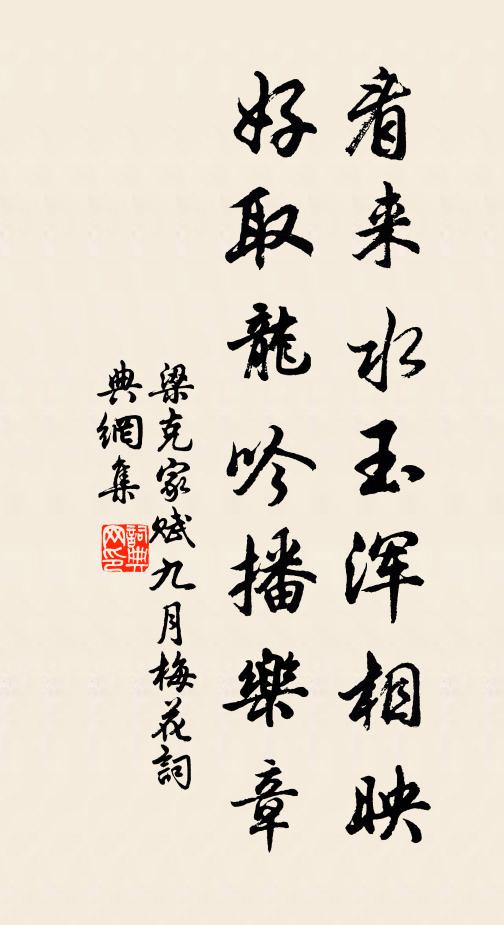 看来水玉浑相映
好取龍吟播樂章
梁克家賦九月梅花詞
典網集
詞典網印